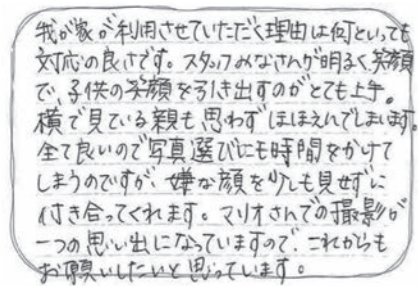 我が家が利用させていただく理由は何といっても
対応の良さです。スタッフみなさんが明るく笑顔
で、子供の笑顔を引き出すのがとても上手。
横で見ている親も思わずほほえんでしまいます。
全て良いので写真選びにも時間をかけて
しまうのですが、嫌な顔を少しも見せずに
付き合ってくれます。マリオさんでの撮影が
一つの思い出になっていますので、これからも
お願いしたいと思っています。